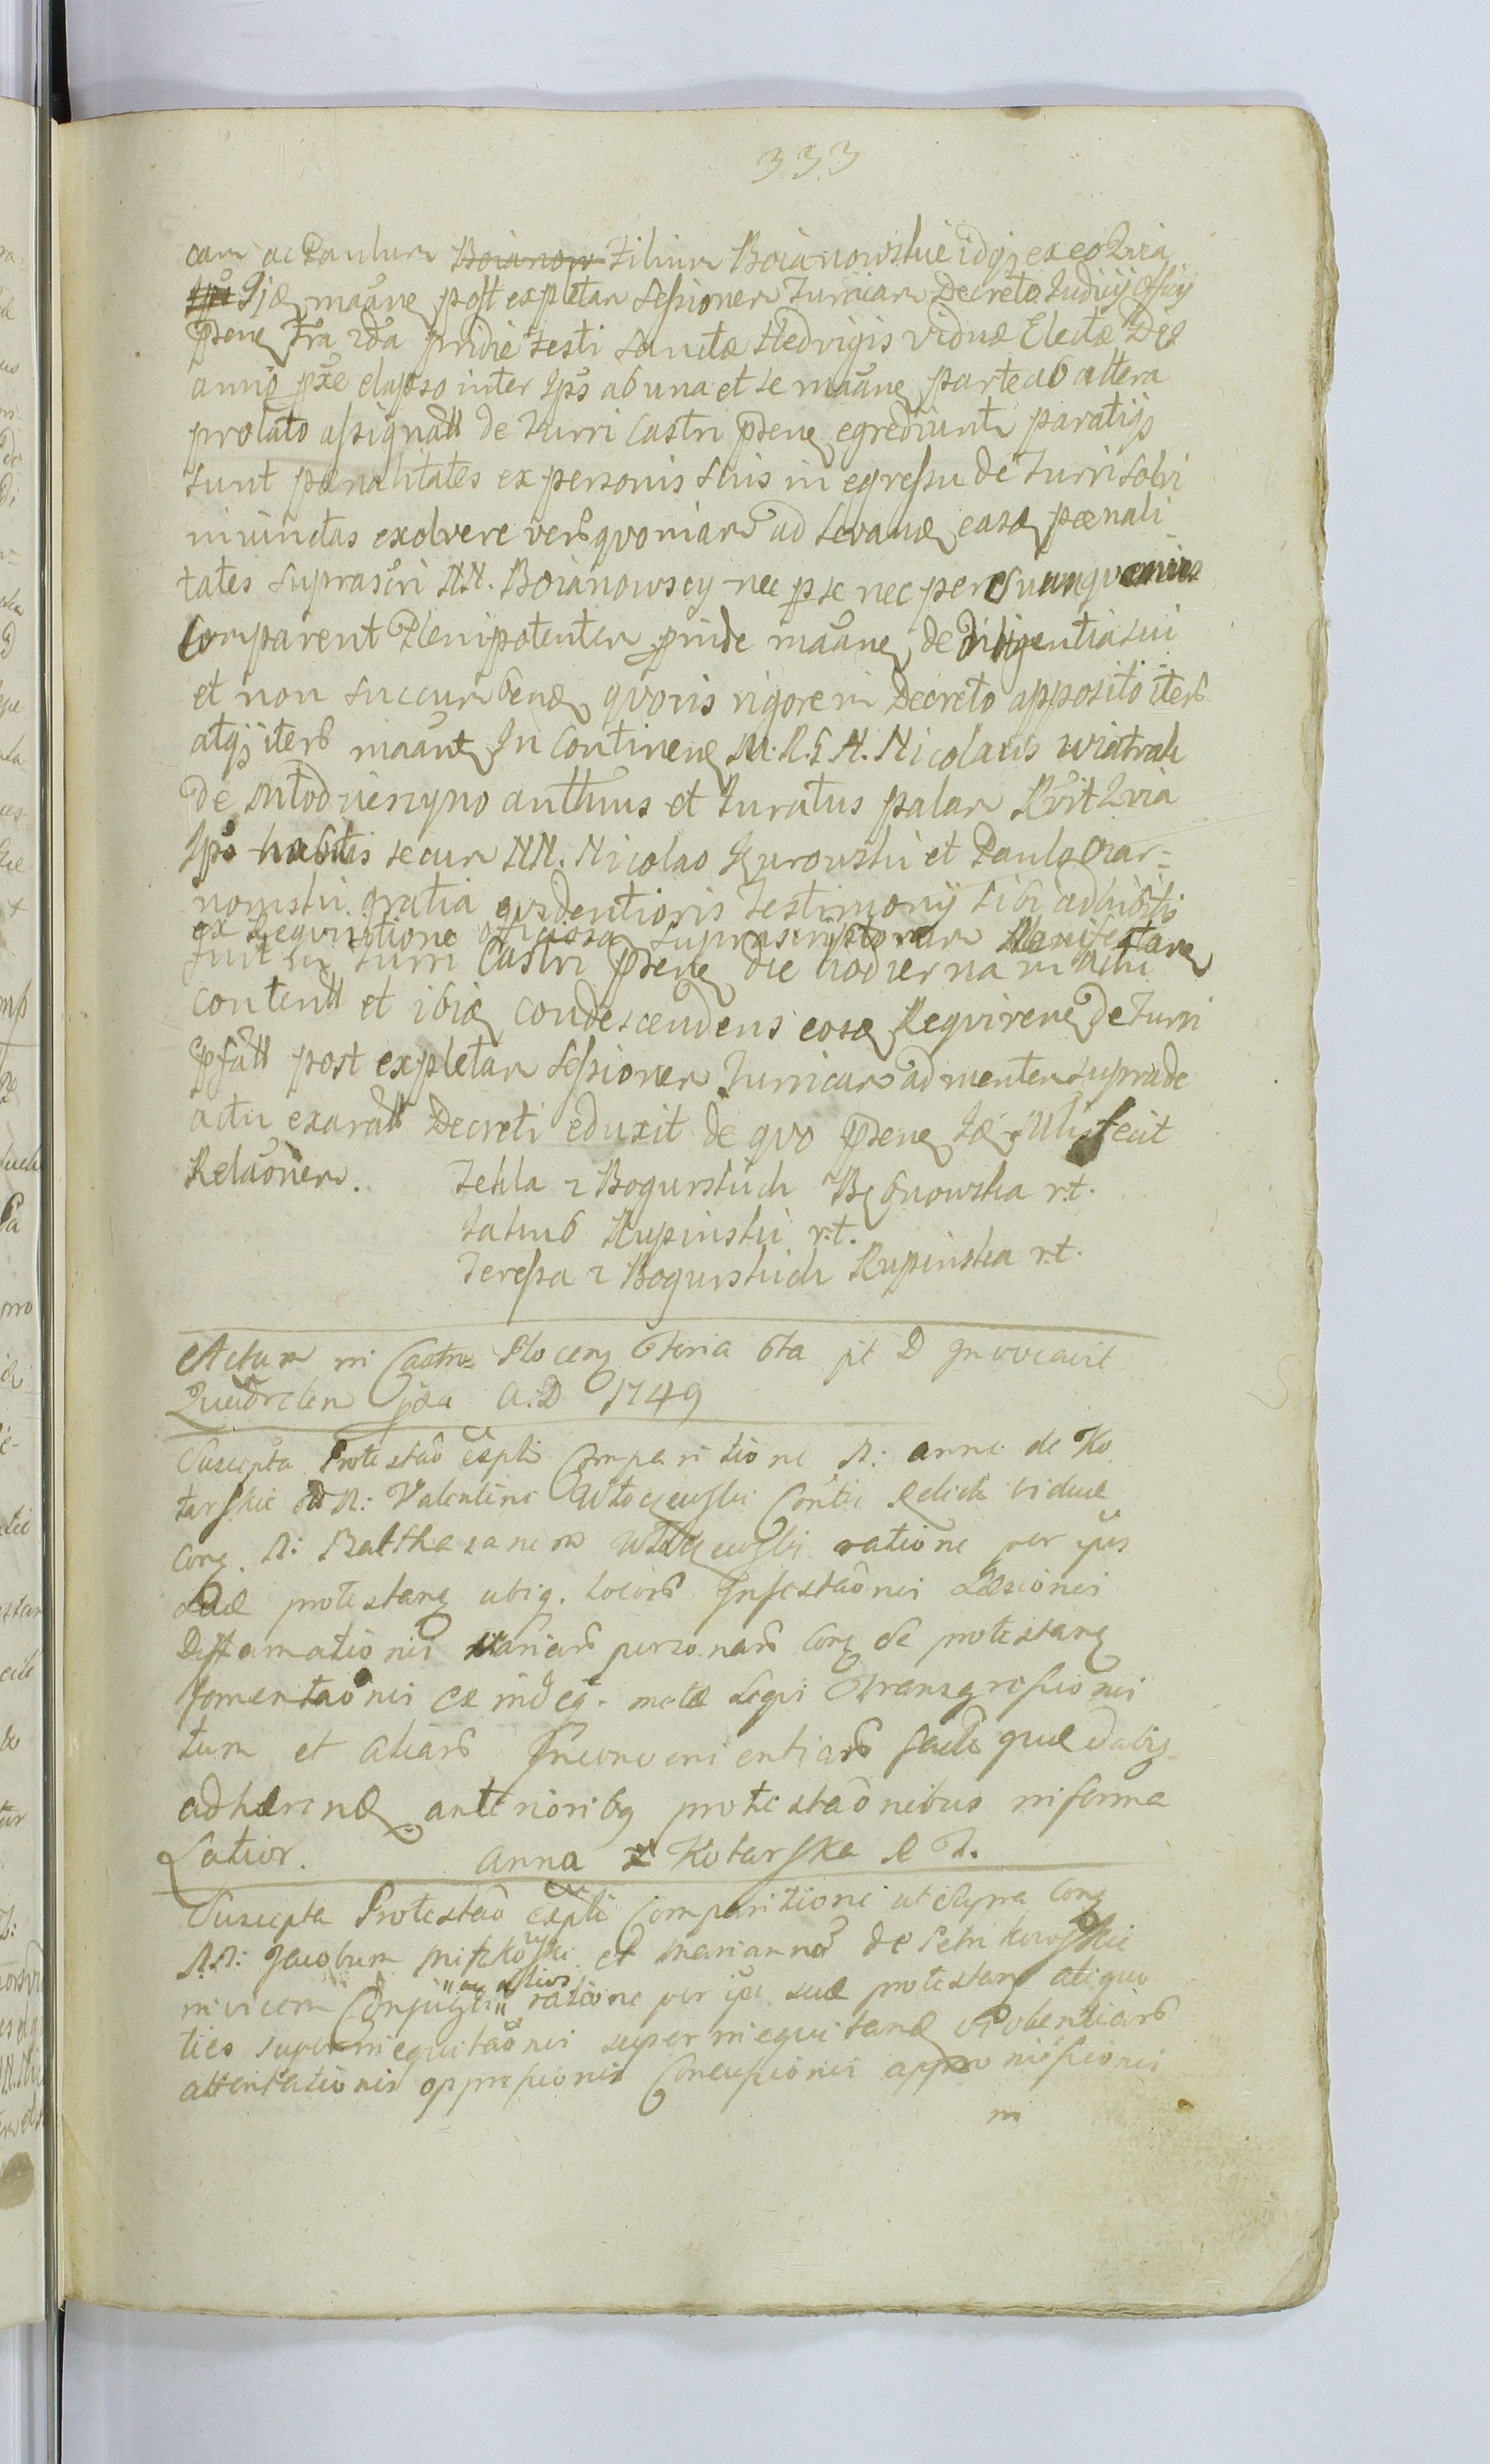 333
cam ac Paulum Boianow Filium Boianowskie idqz ex eo Qvia
Ijdē maāne post expletam Sessionem Turricam Decreto Judicij Officij
pñtnē Fra 2da pridie Festi Sanctæ Hedvigis viduæ Electæ Dei
anno pxe elapso inter Ipōs ab una et se maāne parte ab altera
prolato assignatt de Turri Castri pñtnē egrediunt paratiqz
sunt pœnalitates ex personis suis in egressu de Turri solvi
iniunctas exolvere verō qvoniam ad levanđ easđ pœnali
tates suprascri NN. Boianowscy nec p se nec per suumqvemvis
Comparent Plenipotentem pinde maāne de diligentia sui
et non succumbenđ qvovis rigore in Decreto apposito iterō
atqz iterō maānt In Continenē M. R. G. N. Nicolaus Wiatrak
de Młodnieszyno autthus et Juratus palam Rōit Qvia
Ipō habitis secum NN. Nicolao Gurowski et Paulo Czar=
nomski gratia evidentioris Testimonij sibi adhibitis
ex Reqvisitione officiosa Suprascriptorum Manifestanē
fuit in Turri Castri pñtnē die hodierna in actu
contentt et ibiđ condescendens eosđ Reqvirenē de Turri
pfatt post expletam Sessionem Turricam ad mentem supra de
actu exaratt Decreti eduxit de qvo pñtnē Fecit
Relāonem. Tekla z Bogurskich Bębnowska r.t.
Jakub Rupinski r.t.
Teressa z Bogurskich Rupinska r.t.
Actum in Castro Plocenē Feria 6ta pt D Invocavit
Quadrclem pxa A:D 1749
Suscepta Protestāo expli Comparitione N: Anna de Ko
tarskie N: Valentini Włoczewski Contii Relicta vidua
Conē. N: Balthasarem Włoczewski ratione per ipūs
protestanē ubiq. locorō Infestāonis Læsionis
Diffamationis variarō personarō Conē se protestanē
fomentāonis ex indeq. Legi transgressionis
tum et aliarō Inconvenientiarō
adhærenđ anterioribq protestāonibus in forma
Latior. Anna z Kotarska R T.
Suscepta Protestāo expli Comparitione ut supra Conē
N.N: Jacobum et Mariannā de
invicem Conjuges ratione per ipō suæ protestanē aliquo
ties superinequitāonis super inequitanđ violentiarō
attentationis oppressionis Concussionis
in